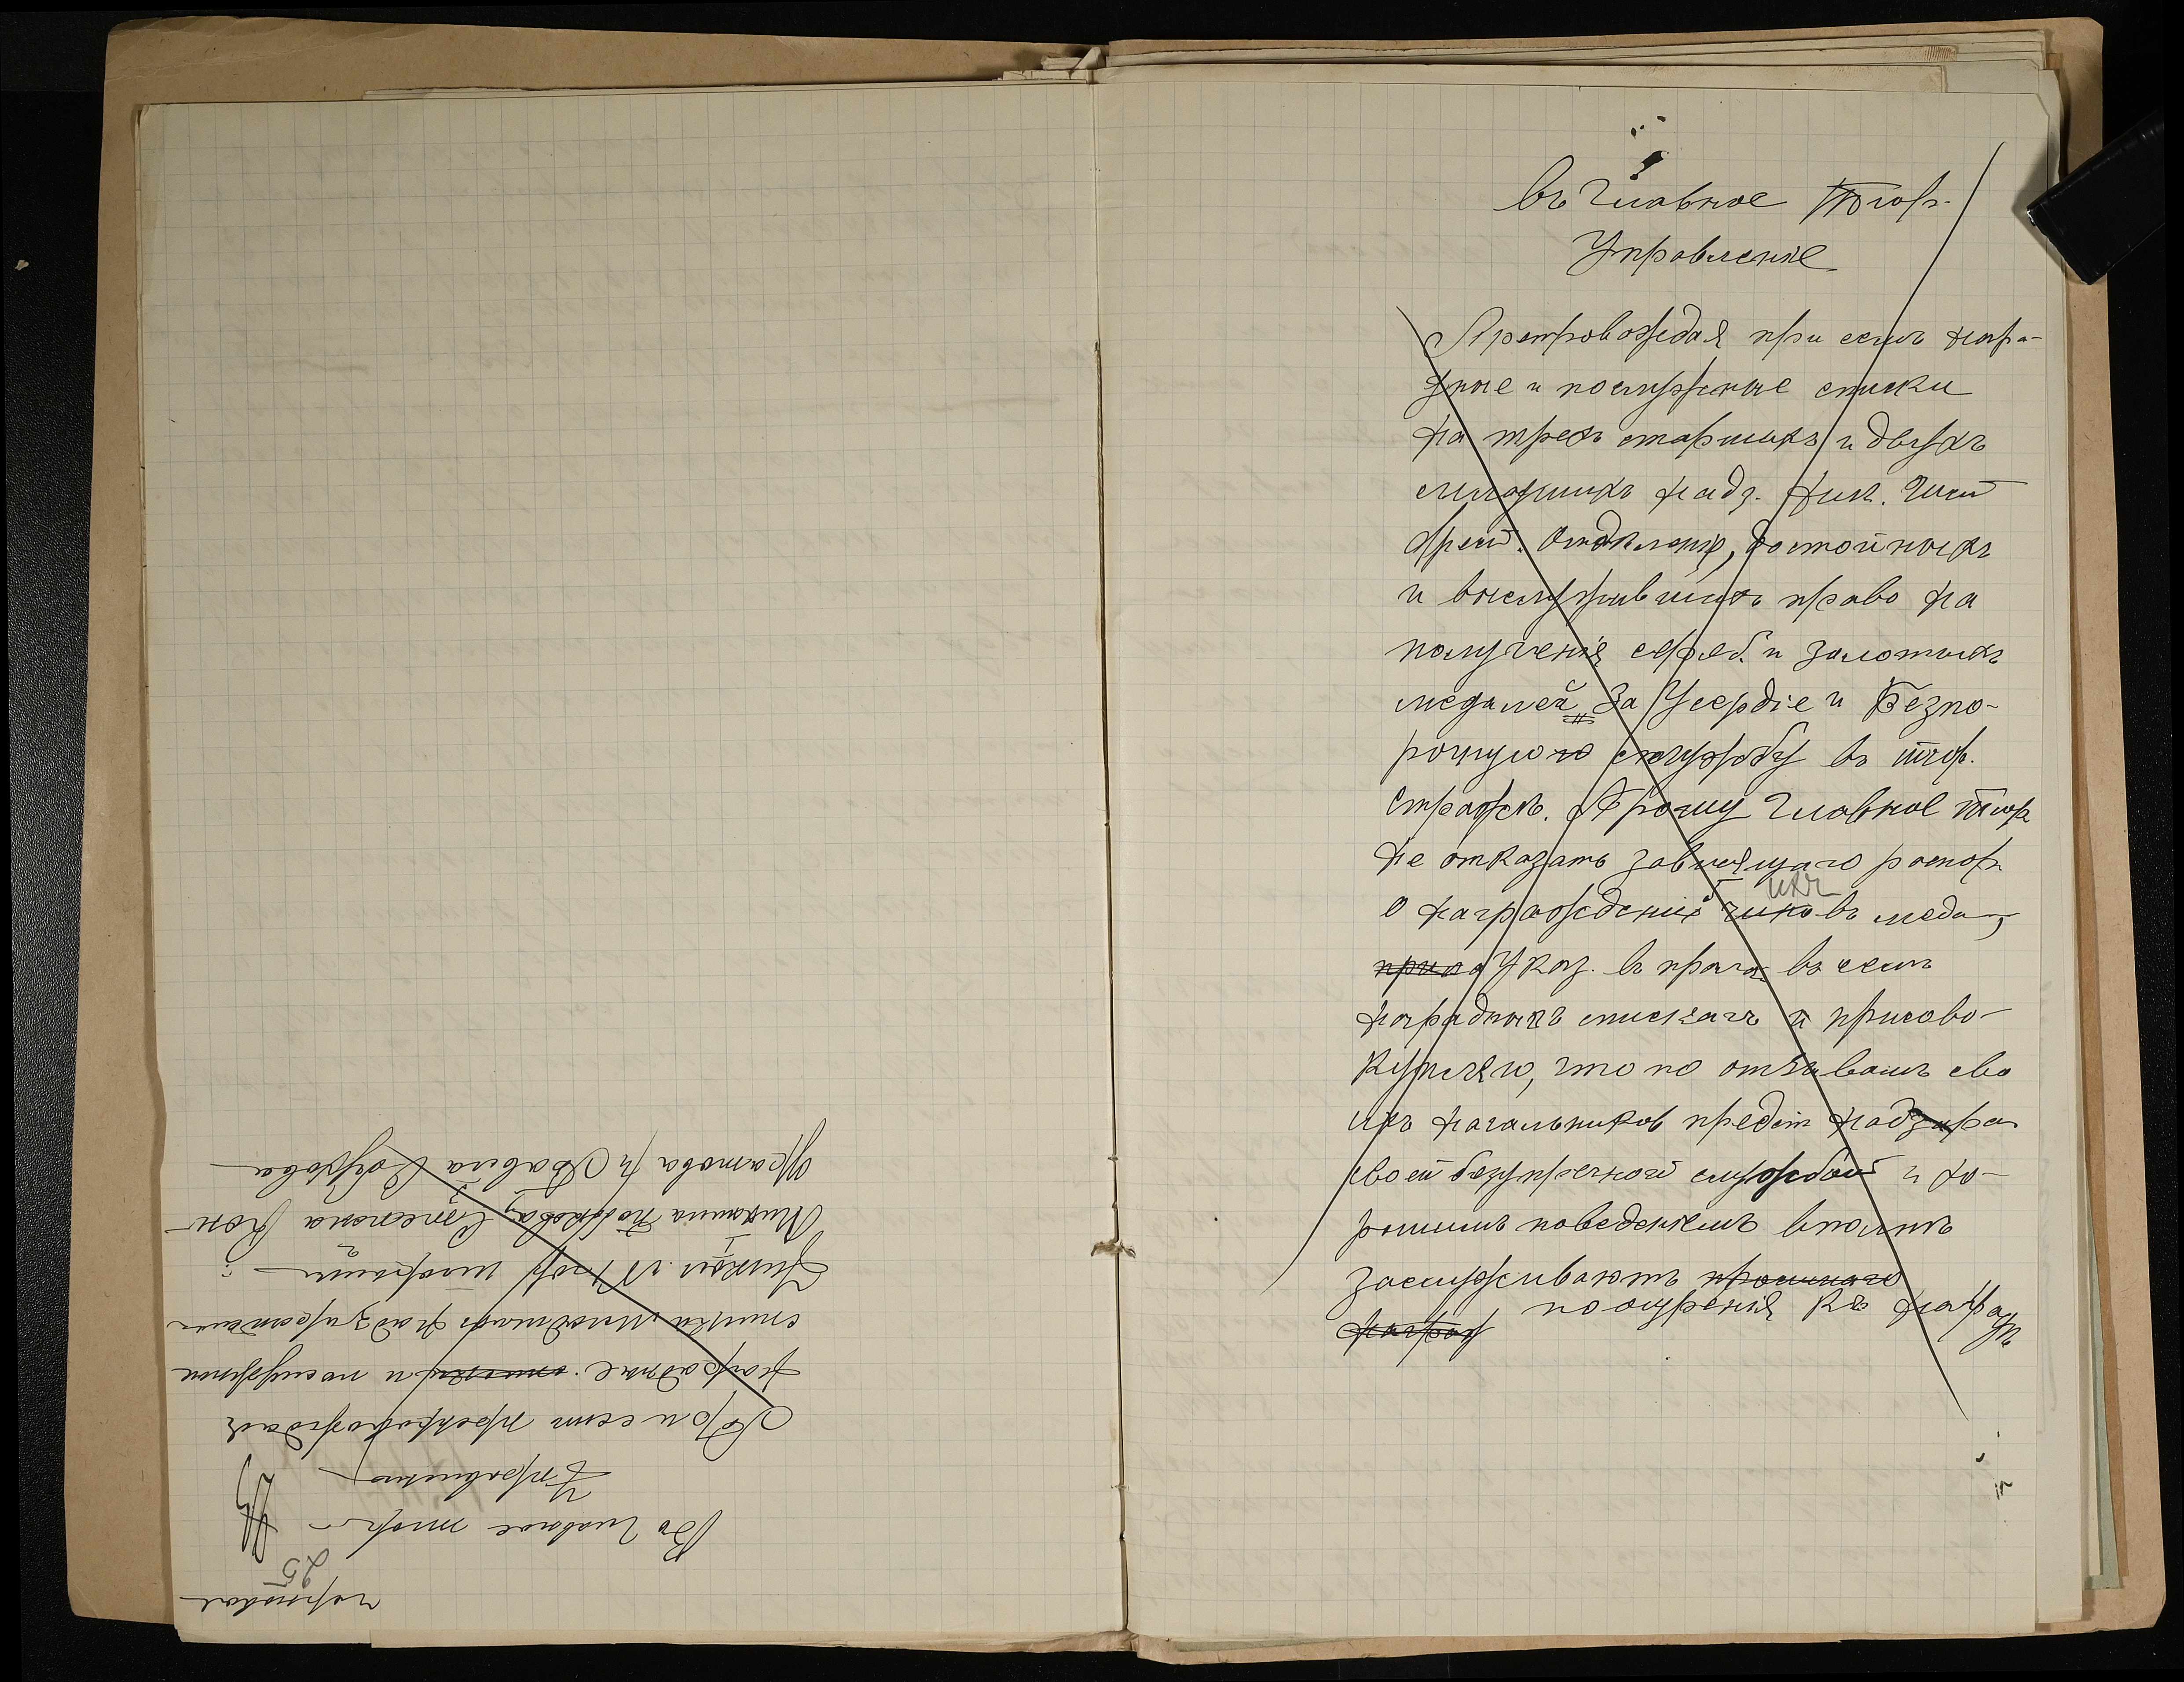 въ Главное Тюр-
Управленіе
Препровождая при семъ награ-
дные и послужные списки
на трехъ старшихъ и двухъ
младшихъ надз.
арест. Отдѣленія, достойныхъ
и выслужившихъ право на
полученія сереб. и золотыхъ
медалей „За Усердіе и Безпо-
рочную службу въ тюр.
Стражѣ. Прошу Главное Тюр
не отказать зависящаго распор.
о награжденіи ихъ чиновъ меда
Указ. въ въ семъ
наградныхъ спискахъ и присово-
купляю, что по отзывамъ сво
ихъ начальниковъ предст надзира
своей безупречной службой и хо-
рошимъ поведеніемъ вполнѣ
заслуживаютъ
поощренія къ наград
наград
черновое
25
Въ Главное тюр
Управленіе
При семъ препровождая
наградные списки и послужные
списки младшихъ надзирателей
Степана Кон-
дратова и Павла